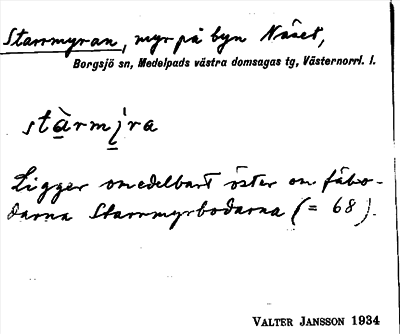 Starrmyran, myr på byn Näset,
Borgsjö sn, Medelpads västra domsagas tg, Västernorrl. l.
stàrmy̱ra
Ligger omedelbart öster om fäbo-
darna Starrmyrbodarna (= 68).
VALTER JANSSON 1934